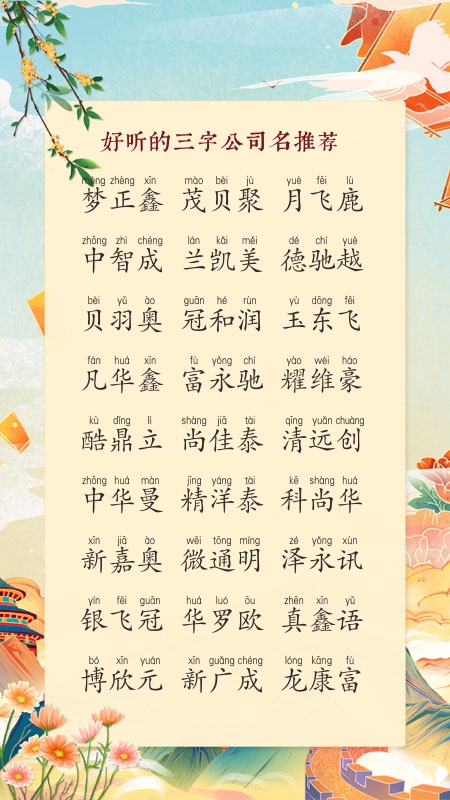 好听的三字公司名推荐
mèng zhèng xīn mào bèi jù yuè fēi lù
梦正鑫 茂贝聚 月飞鹿
zhōng zhì chéng lán kǎi měi dé chí yuè
中智成 兰凯美 德驰越
bèi yǔ ào guān hé rùn yù dōng fēi
贝羽奥 冠和润 玉东飞
fán huá xīn fù yǒng chí yào wéi háo
凡华鑫 富永驰 耀维豪
kù dǐng lì shàng jiā tài qīng yuǎn chuàng
酷鼎立 尚佳泰 清远创
zhōng huá màn jīng yáng tài kē shàng huá
中华曼 精洋泰 科尚华
xīn jiā ào wēi tōng míng zé yǒng xùn
新嘉奥 微通明 泽永讯
yín fēi guān huá luó ōu zhēn xīn yǔ
银飞冠 华罗欧 真鑫语
bó xīn yuán xīn guǎng chéng lóng kāng fù
博欣元 新广成 龙康富